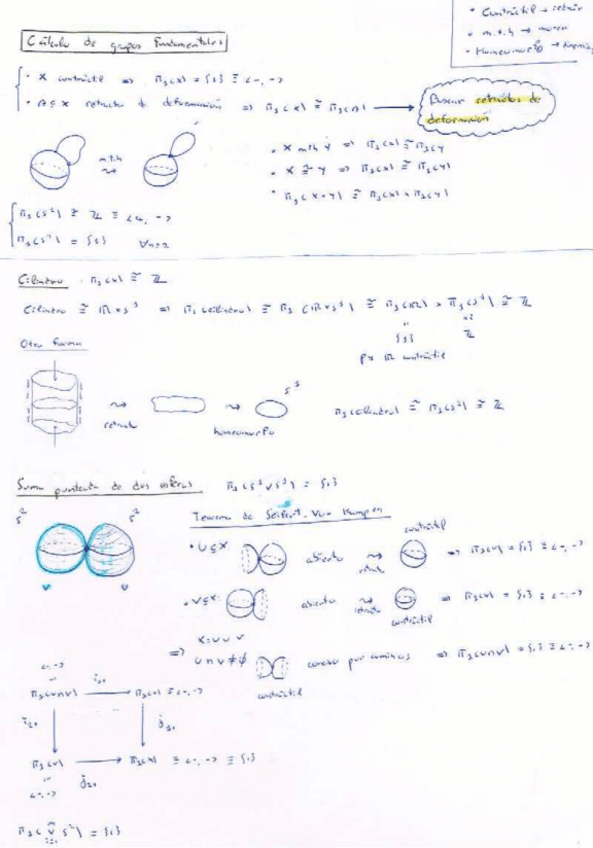 • Contráctil → retrae
• m.t.h →
• Homeomorfo →
Cálculo de grupos fundamentales
• X contráctil ⇒ π₁(X) = {1} ≡ <-, ->
• A ⊆ X retracto de deformación ⇒ π₁(X) ≅ π₁(A) → Buscar retractos de deformación
m.t.h
• X m.t.h Y ⇒ π₁(X) ≅ π₁(Y)
• X ≅ Y ⇒ π₁(X) ≅ π₁(Y)
• π₁(X×Y) ≅ π₁(X) × π₁(Y)
π₁(S¹) ≅ ℤ ≡ <a, ->
π₁(Sⁿ) = {1} ∀n≥2
Cilindro π₁(X) ≅ ℤ
Cilindro ≅ ℝ×S¹ ⇒ π₁(cilindro) ≅ π₁(ℝ×S¹) ≅ π₁(ℝ) × π₁(S¹) ≅ ℤ
{1} ℤ
pq ℝ contráctil
Otra forma
S¹
retracto
homeomorfo
π₁(cilindro) ≅ π₁(S¹) ≅ ℤ
Suma puntual de dos esferas π₁(S²∨S²) = {1}
S² S²
V U
Teorema de Seifert-Van Kampen
• U⊆X abierto retracto contráctil ⇒ π₁(U) = {1} ≡ <-, ->
• V⊆X abierto retracto contráctil ⇒ π₁(V) = {1} ≡ <-, ->
⇒ X=U∪V
U∩V≠∅ conexo por caminos ⇒ π₁(U∩V) = {1} ≡ <-, ->
contráctil
<-, ->
π₁(U∩V) i₁* π₁(U) ≡ <-, ->
i₂* j₁*
π₁(V) → π₁(X) ≡ <-, -> ≡ {1}
<-, -> j₂*
π₁(⋁ⁿᵢ₌₁ S²) = {1}